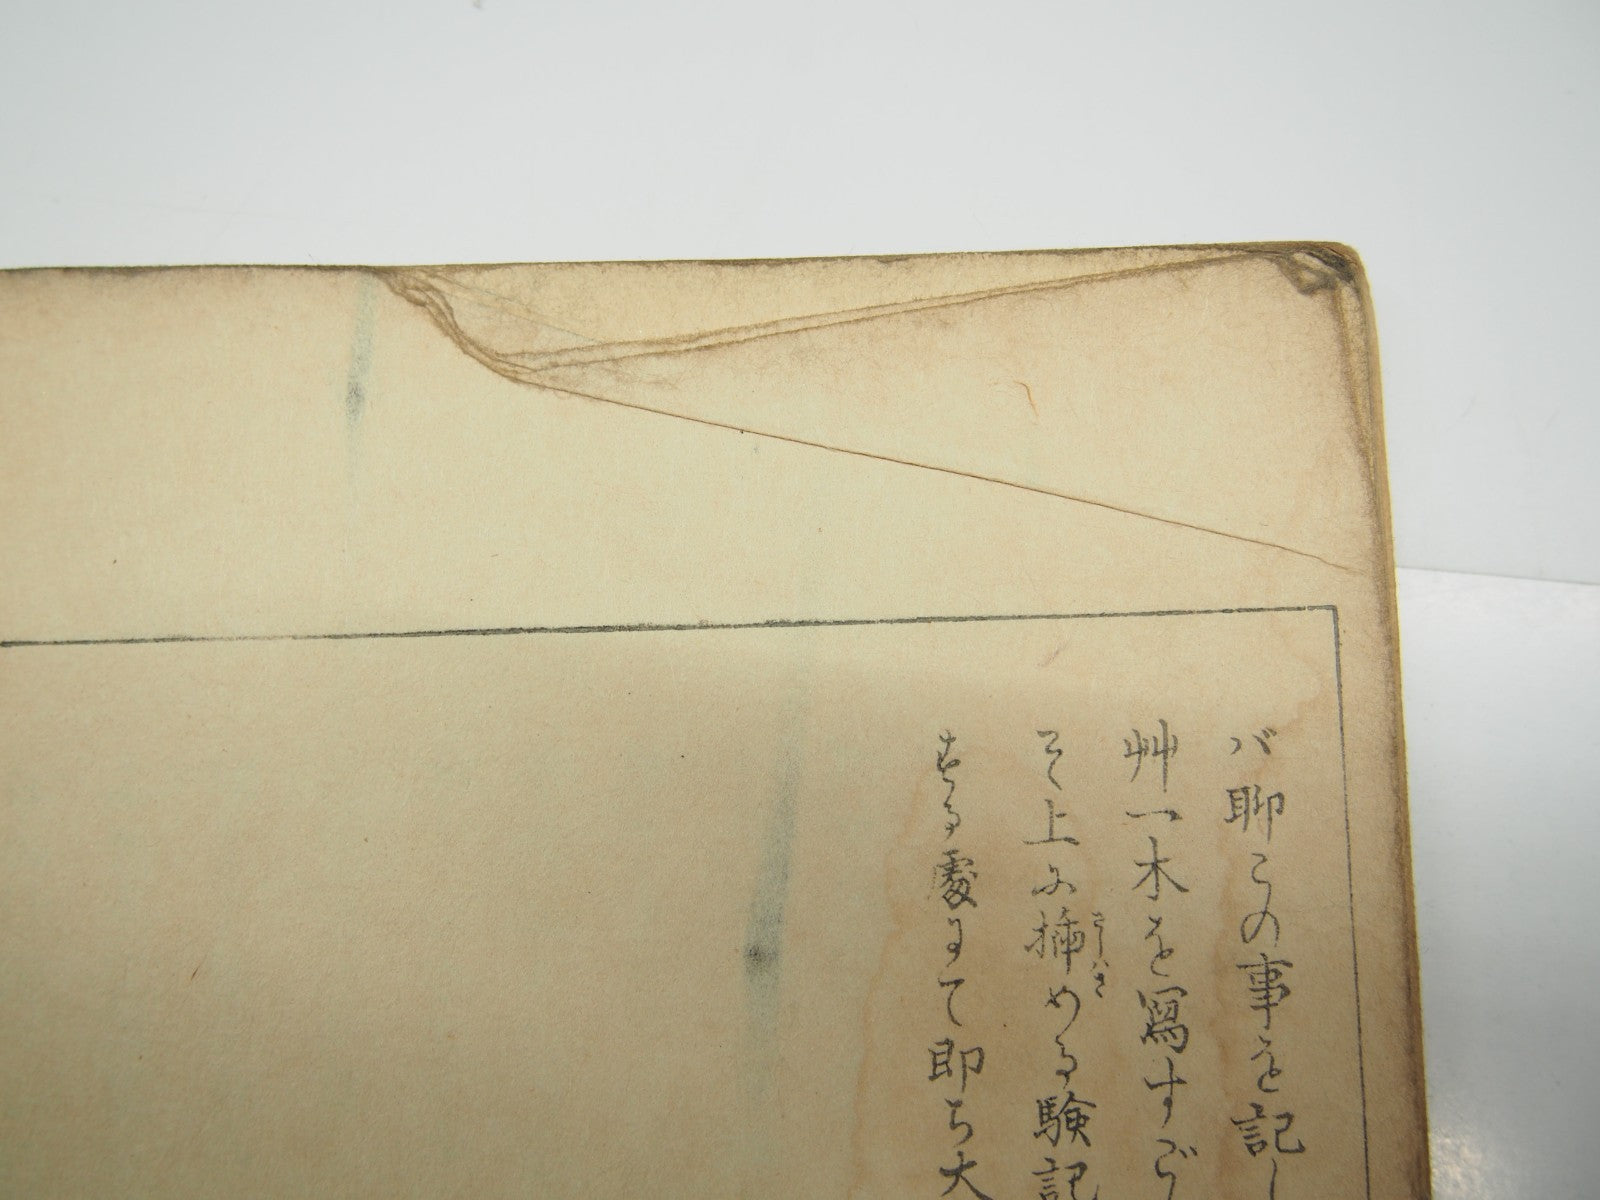 バ聊この事を記し
艸一木を寫すご
そ上に挿める驗記
する處にて即ち大